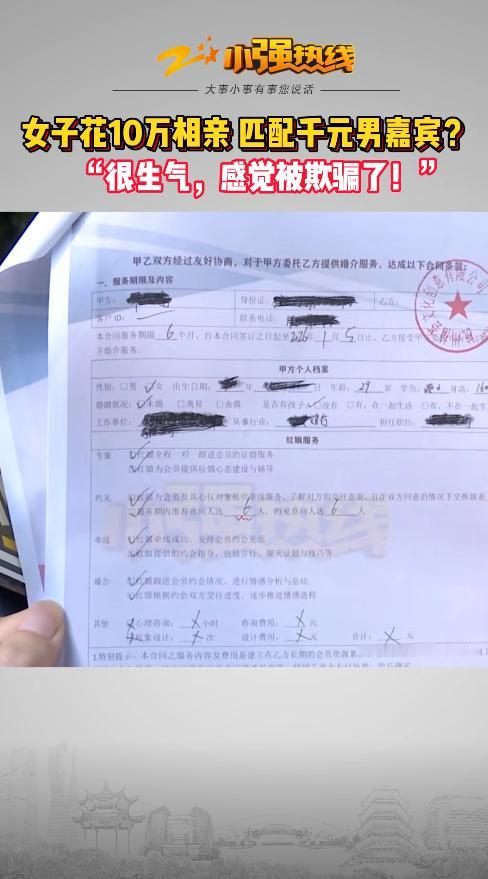 小强热线
大事小事有事您说话
女子花10万相亲 匹配千元男嘉宾?
“很生气,感觉被欺骗了!”
甲乙双方经过友好协商,对于甲方委托乙方提供婚介服务,达成以下合同条款:
一、服务期限及内容
甲方: 身份证: 乙方:
客户ID: 联系电话:
本合同服务期限 6 个月,自本合同签订之日起至2026年1月5日止,乙方接受甲
下婚介服务。
甲方个人档案
性别:□男 ☑女 出生日期: 年 年龄:29 岁 学历: 身高:16
婚姻状况:☑未婚 □离异 □丧偶 是否有孩子:☑没有 □有,在一起生活 □有,不在一起生
工作单位: 从事行业: 担任职位:
红娘服务
专案 ☑红娘全程一对一跟进会员的征婚服务
☑红娘为会员提供征婚心态建设与辅导
约见 ☑红娘为会员及其心仪对象提供牵线服务,了解对方的交往意愿,并在双方同意的情况下交换联系
☑服务期内推荐意向人选 6 人,约见意向人选 6 人
牵线 ☑红娘牵线成功,安排会员约会见面
☑红娘提供的约会指导,包括言行、聊天话题与技巧等
撮合 ☑红娘跟进会员约会情况,进行情感分析与总结
☑红娘根据约会双方交往进度,逐步推进情感进程
其他 心理咨询: X 小时 咨询费用: X 元
形象设计: X 次 设计费用: X 元 合计: X 元
1.特别提示:本合同之服务内容及费用是建立在乙方长期的会员资源累
小强热线